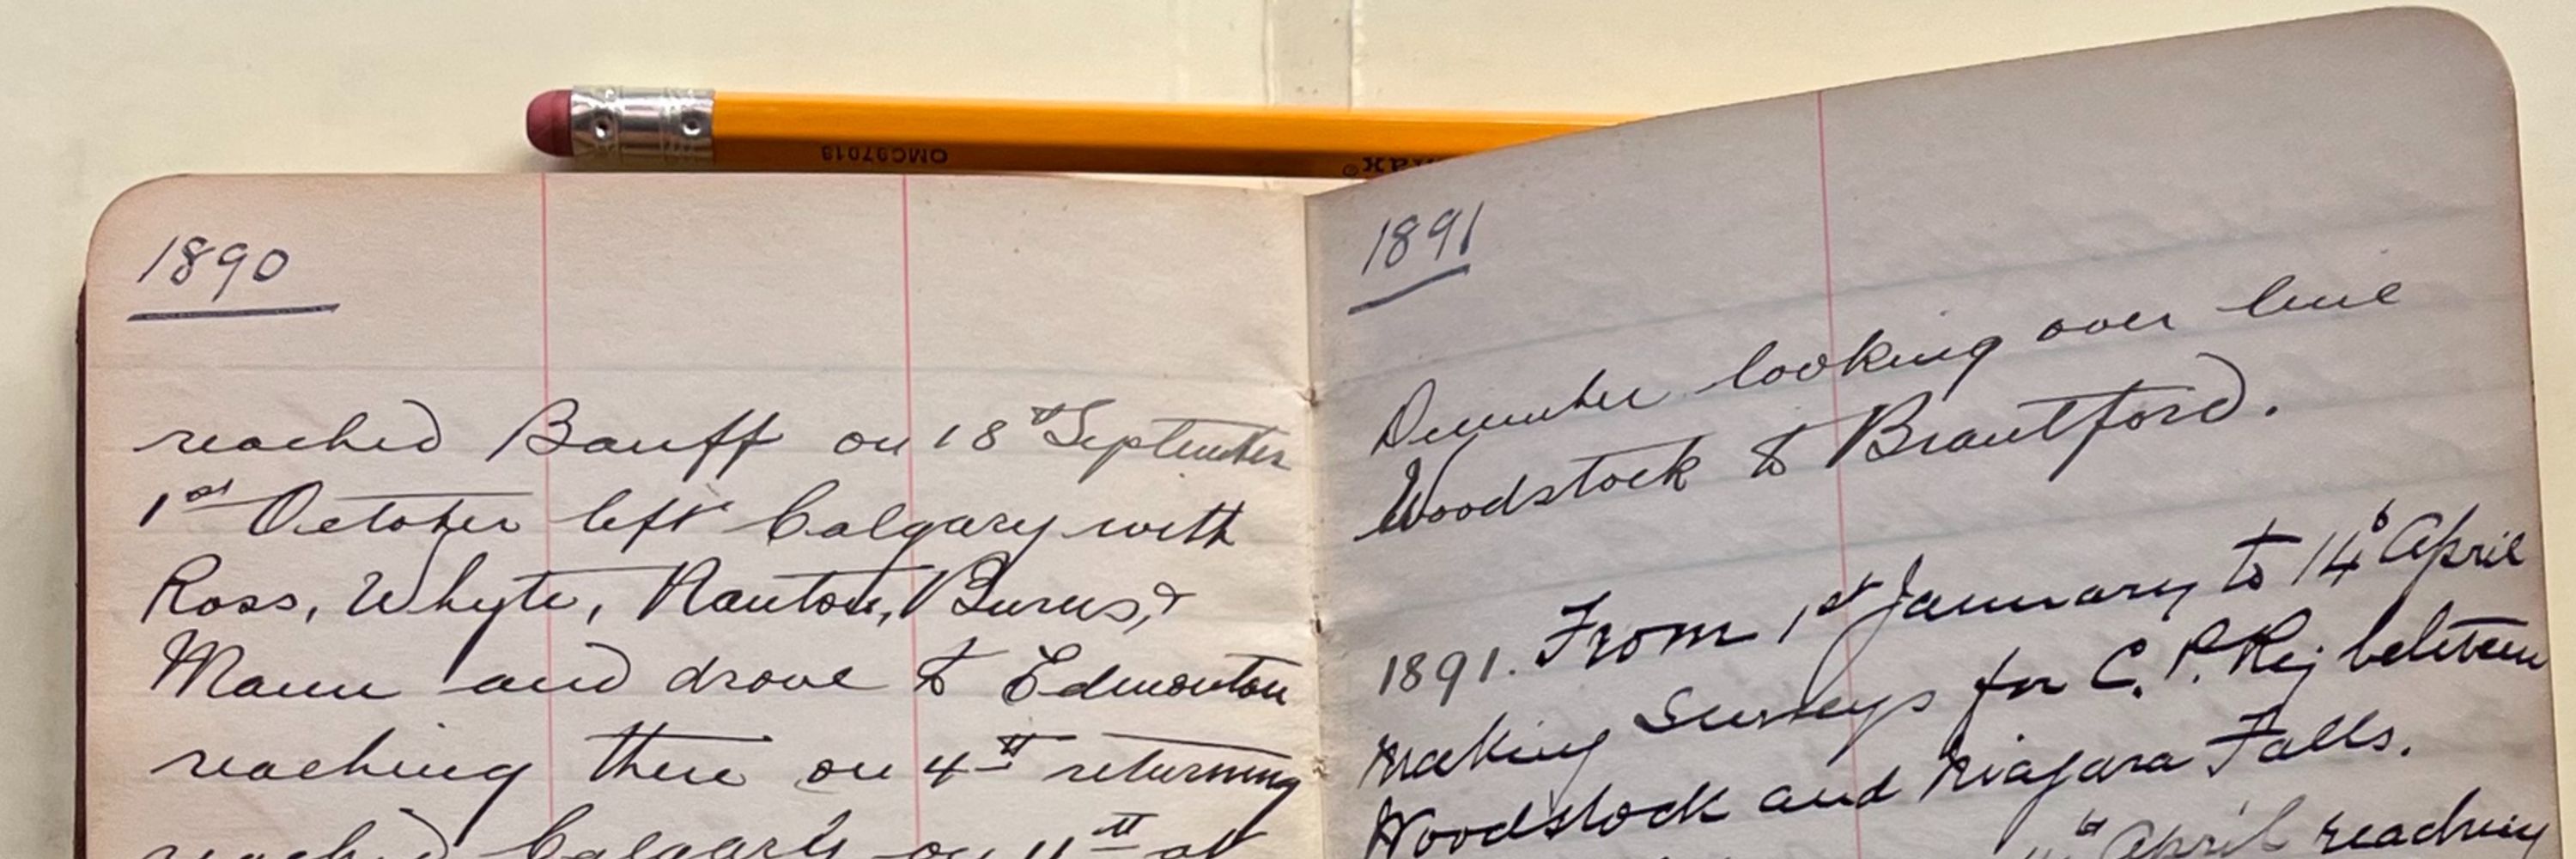 OMG97018
max®
1890
reached Banff on 18th September
1st October left Calgary with
Ross, Whyte, Nanton, Burns, &
Mann and drove to Edmonton
reaching there on 4th returning
reached Calgary on 11th at
1891
December looking over line
Woodstock to Brantford.
1891. From 1st January to 14th April
making surveys for C. P. Ry between
Woodstock and Niagara Falls.
April reaching